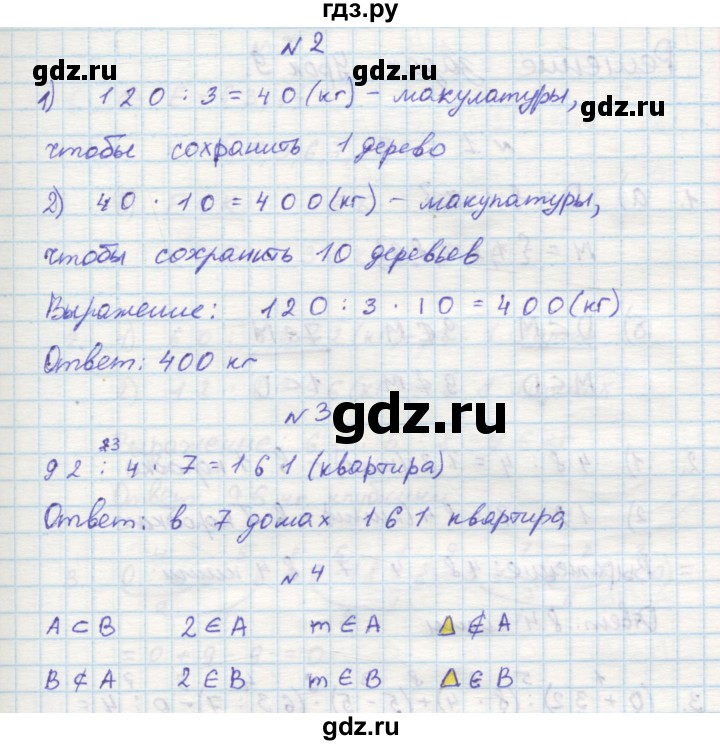 гдз.ру
№ 2
gdz.ru gdz.ru gdz.ru
1) 120 : 3 = 40 (кг) - макулатуры,
чтобы сохранить 1 дерево
2) 40 · 10 = 400 (кг) - макулатуры,
gdz.ru gdz.ru
чтобы сохранить 10 деревьев
Выражение: 120 : 3 · 10 = 400 (кг)
Ответ: 400 кг
gdz.ru
№ 3
23
92 : 4 · 7 = 161 (квартира)
gdz.ru gdz.ru
Ответ: в 7 домах 161 квартира
№ 4
A ⊂ B 2 ∈ A m ∈ A △ ∉ A
gdz.ru gdz.ru gdz.ru
B ⊄ A 2 ∈ B m ∈ B △ ∈ B
gdz.ru